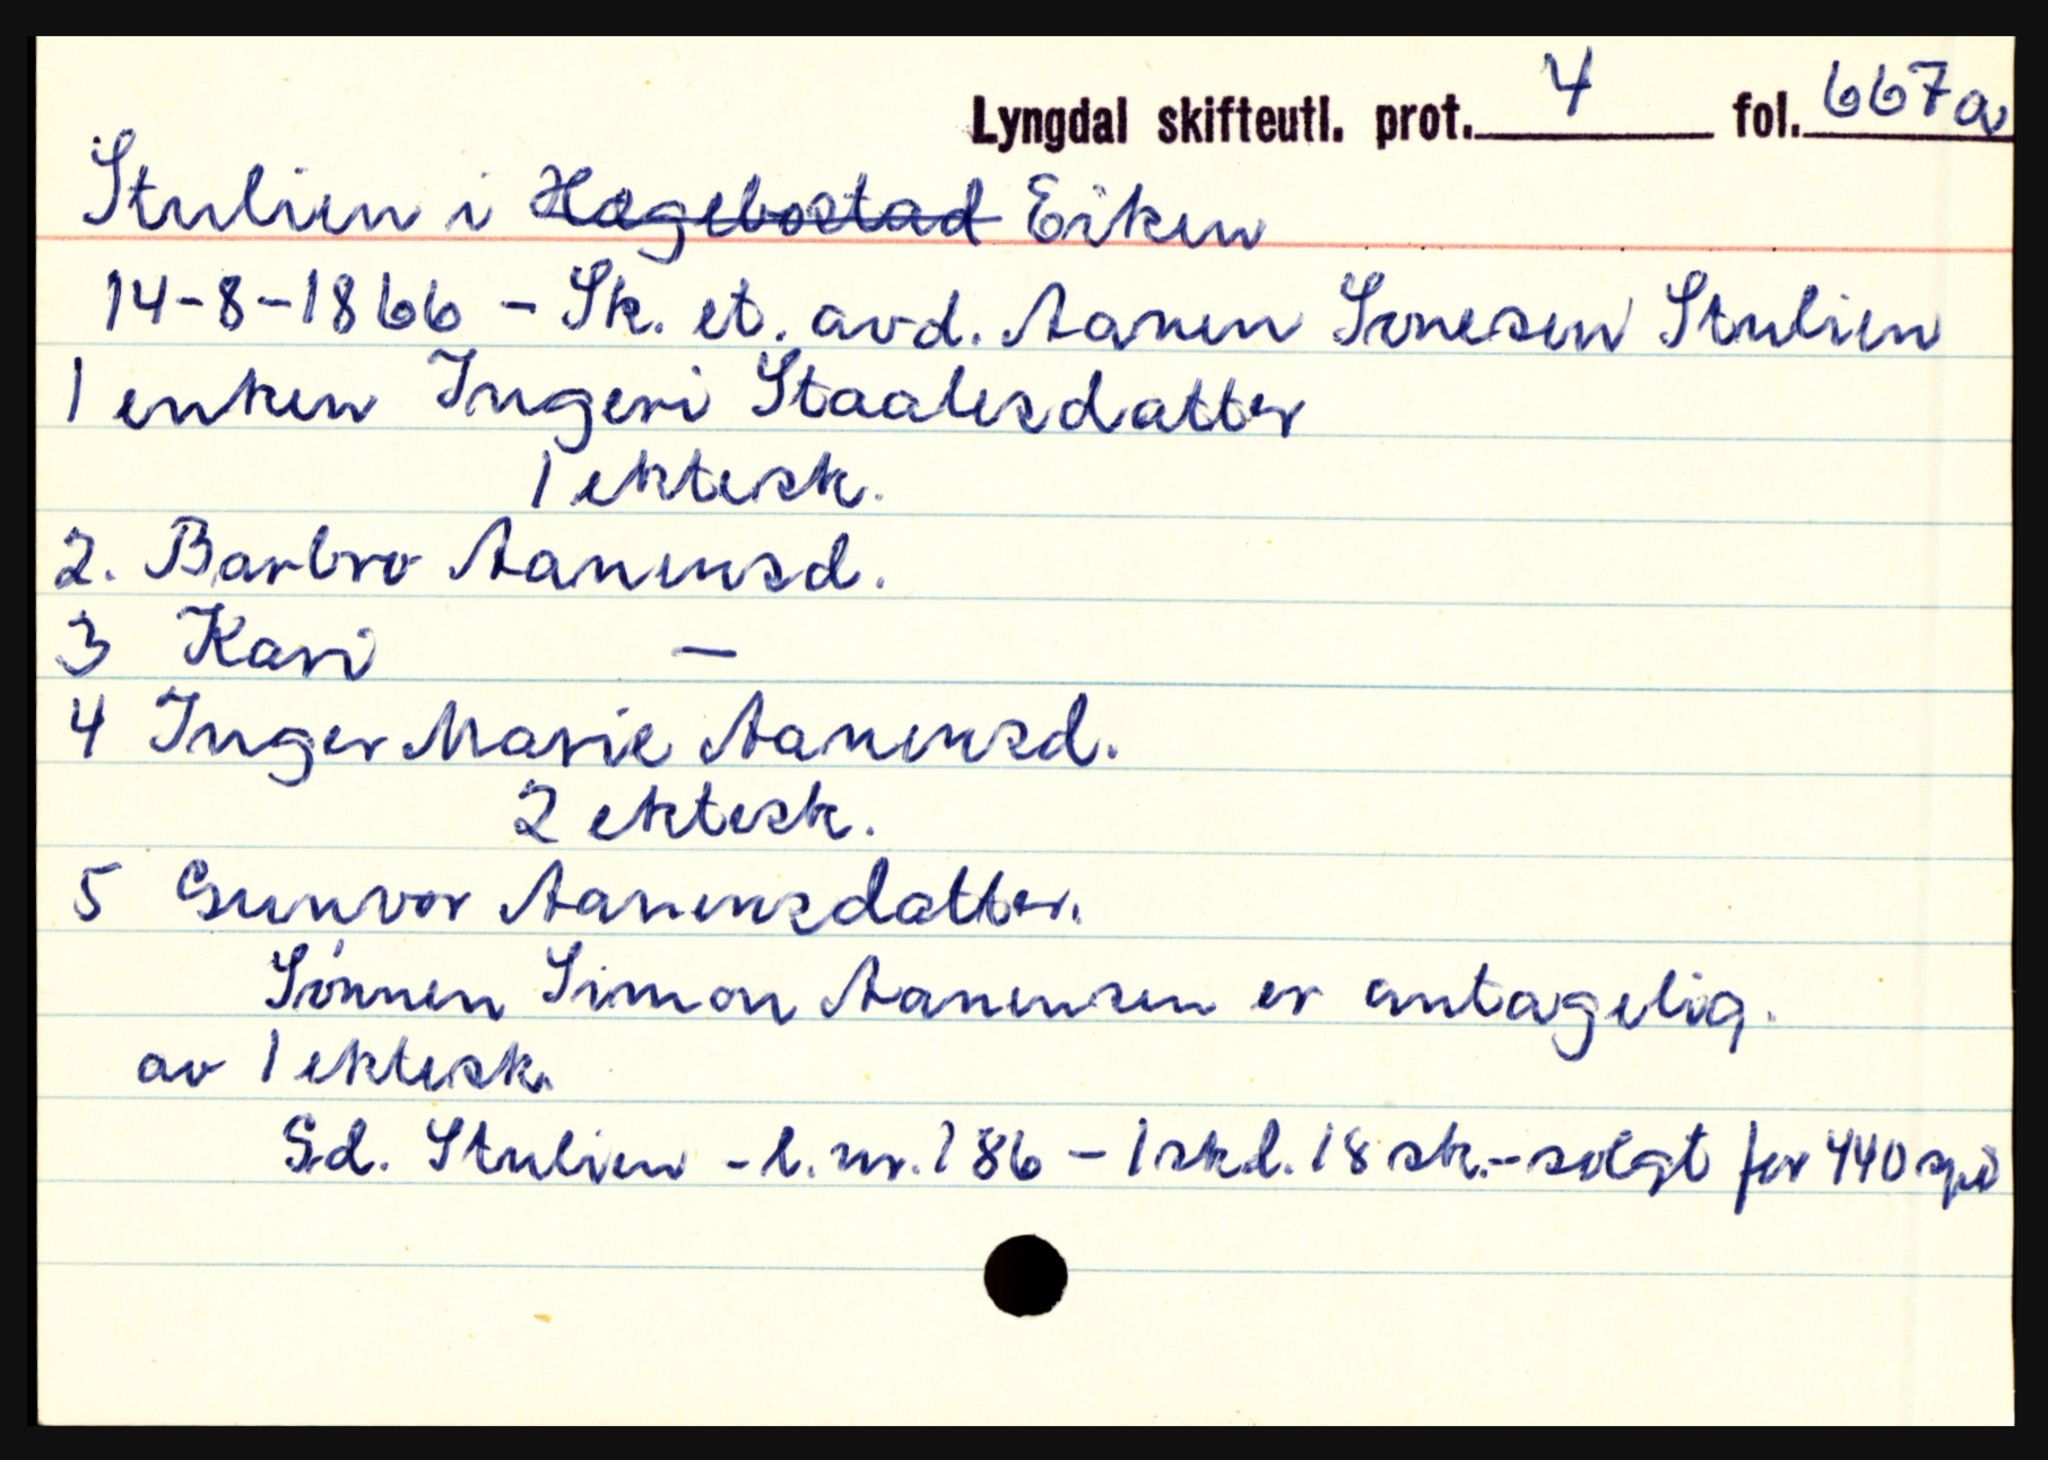 Lyngdal skifteutl. prot. 4 fol. 667a
Stulien i Hægebostad Eiken
14-8-1866 - Sk. et. avd. Aanen Sonesen Stulien
1 enken Ingeri Staalesdatter
1 ektesk.
2. Barbro Aanensd.
3 Kari —
4 Inger Marie Aanensd.
2 ektesk.
5 Gunvor Aanensdatter.
Sønnen Simon Aanensen er antagelig.
av 1 ektesk.
Gd. Stulien - l. nr. 186 - 1 skd. 18 sk. - solgt for 440 spd